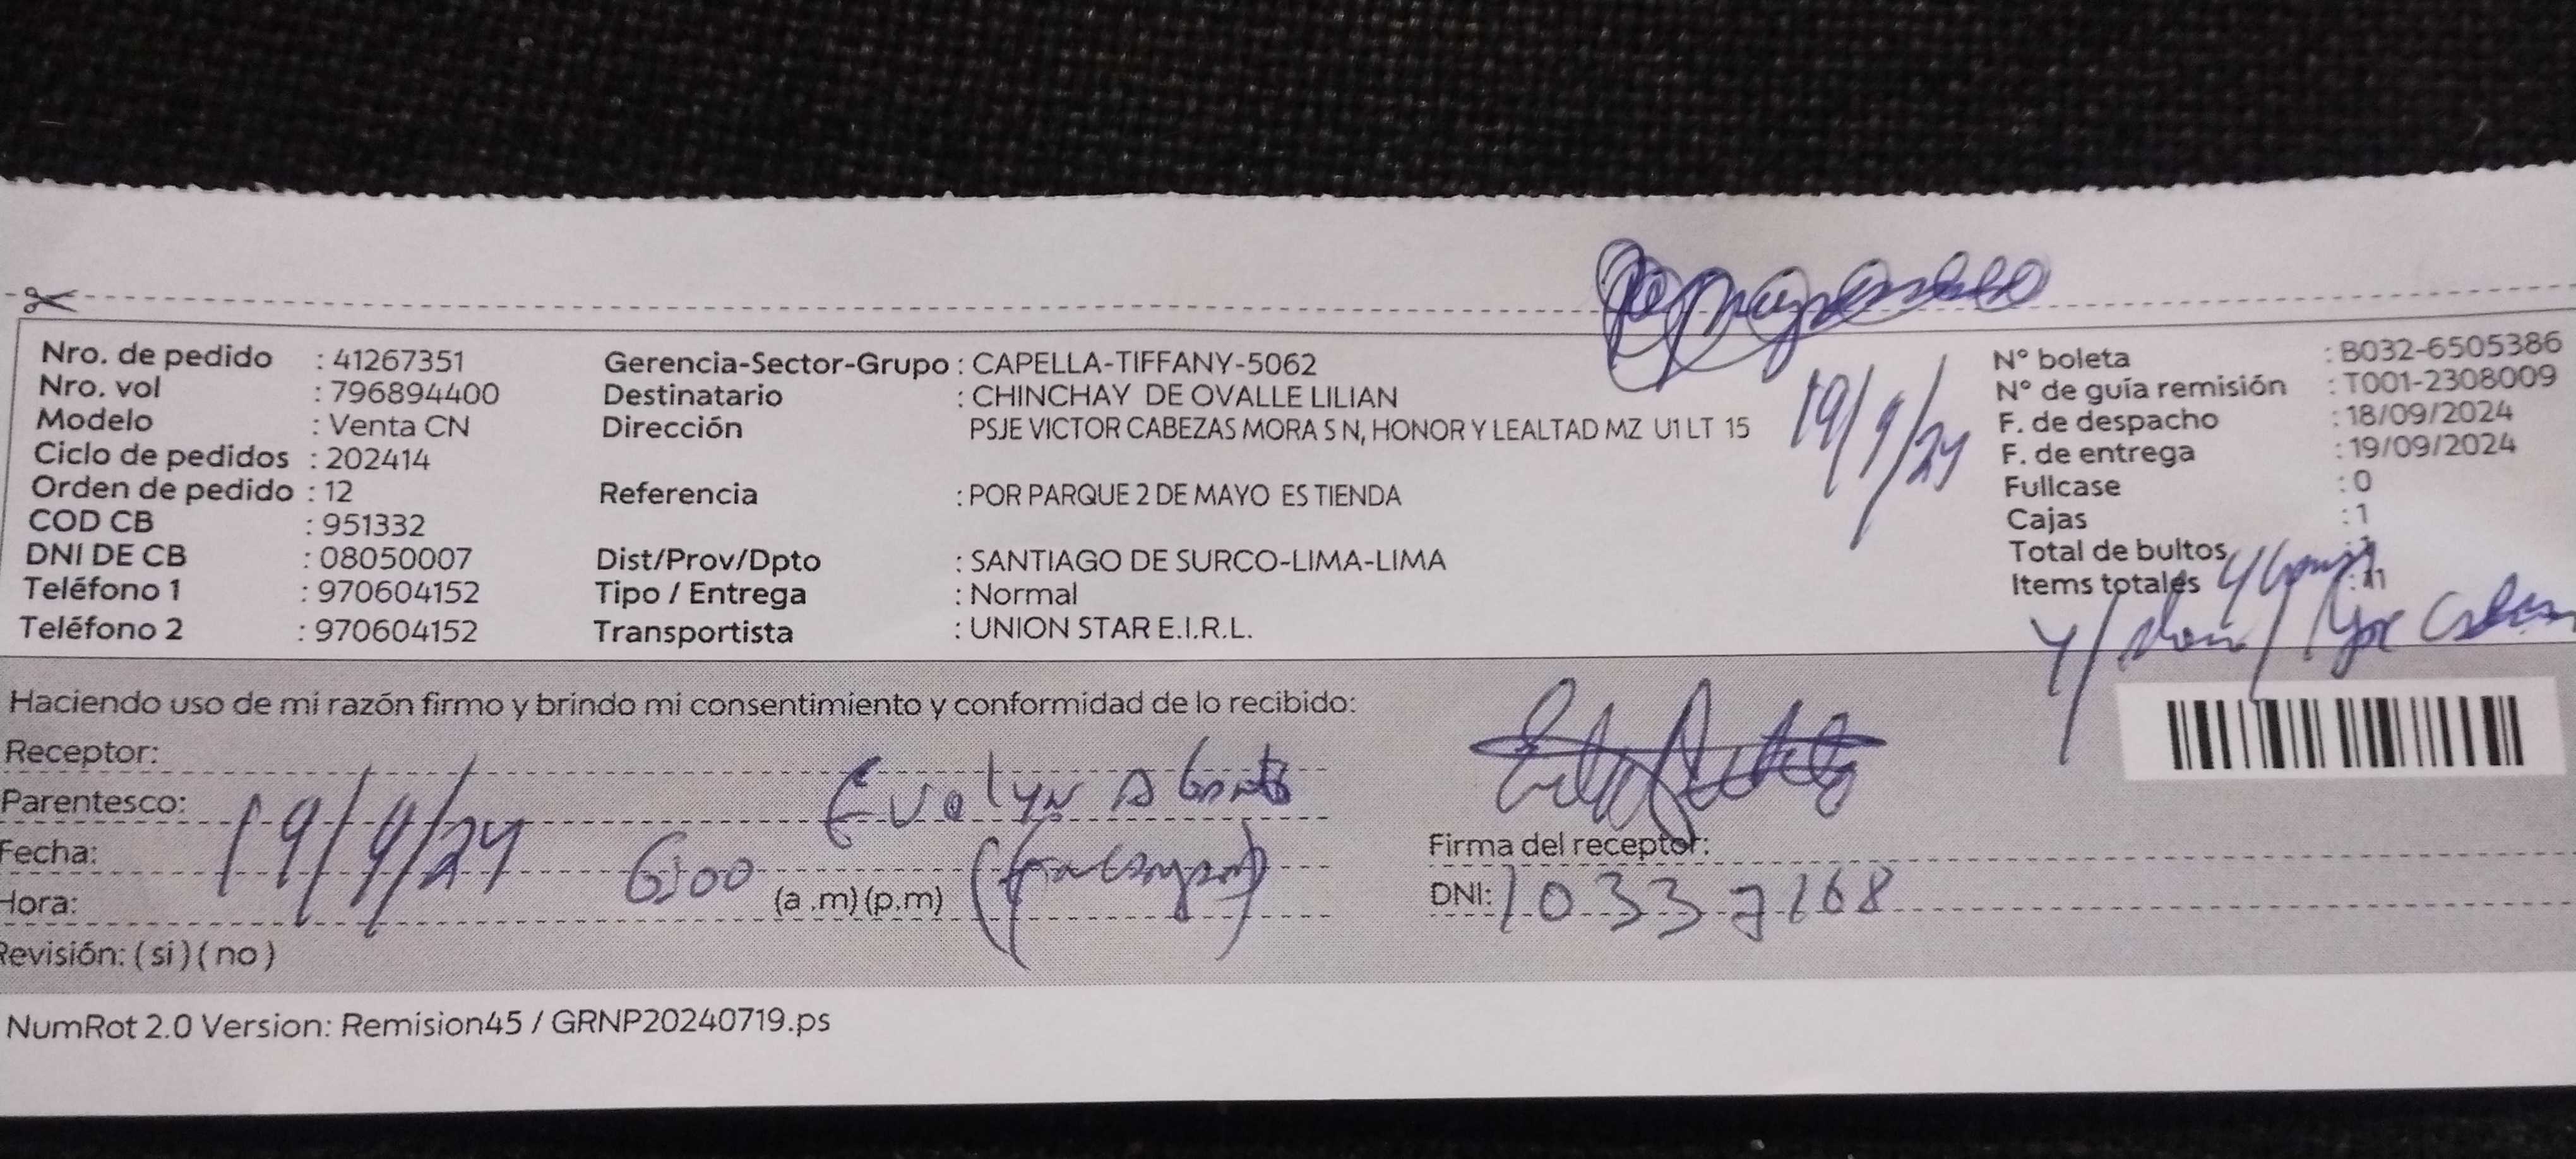 Nro. de pedido : 41267351
Nro. vol : 796894400
Modelo : Venta CN
Ciclo de pedidos : 202414
Orden de pedido : 12
COD CB : 951332
DNI DE CB : 08050007
Teléfono 1 : 970604152
Teléfono 2 : 970604152
Gerencia-Sector-Grupo : CAPELLA-TIFFANY-5062
Destinatario : CHINCHAY DE OVALLE LILIAN
Dirección PSJE VICTOR CABEZAS MORA S N, HONOR Y LEALTAD MZ U1 LT 15
Referencia : POR PARQUE 2 DE MAYO ES TIENDA
Dist/Prov/Dpto : SANTIAGO DE SURCO-LIMA-LIMA
Tipo / Entrega : Normal
Transportista : UNION STAR E.I.R.L.
19/9/24
N° boleta : B032-6505386
N° de guía remisión : T001-2308009
F. de despacho : 18/09/2024
F. de entrega : 19/09/2024
Fullcase : 0
Cajas : 1
Total de bultos
Items totales
Haciendo uso de mi razón firmo y brindo mi consentimiento y conformidad de lo recibido:
Receptor:
Evelyn
Parentesco:
Fecha: 19/9/24
Hora: 6:00 (a .m) (p.m)
Revisión: ( si ) ( no )
Firma del receptor:
DNI: 10337168
NumRot 2.0 Version: Remision45 / GRNP20240719.ps